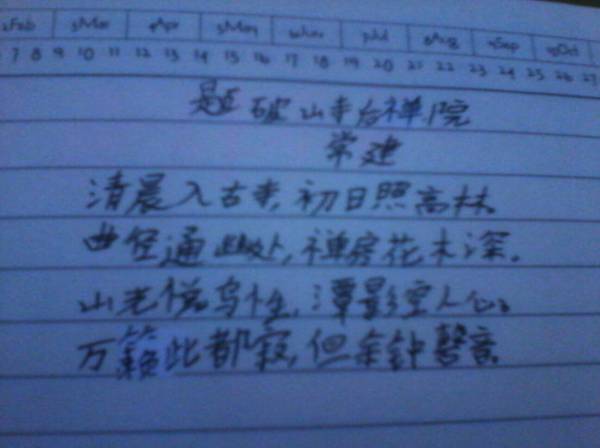 2Feb 3Mar 4Apr 5May 6Jun 7Jul 8Aug 9Sep 10Oct
7 8 9 10 11 12 13 14 15 16 17 18 19 20 21 22 23 24 25 26 27
题破山寺后禅院
常建
清晨入古寺,初日照高林。
曲径通幽处,禅房花木深。
山光悦鸟性,潭影空人心。
万籁此都寂,但余钟磬音。